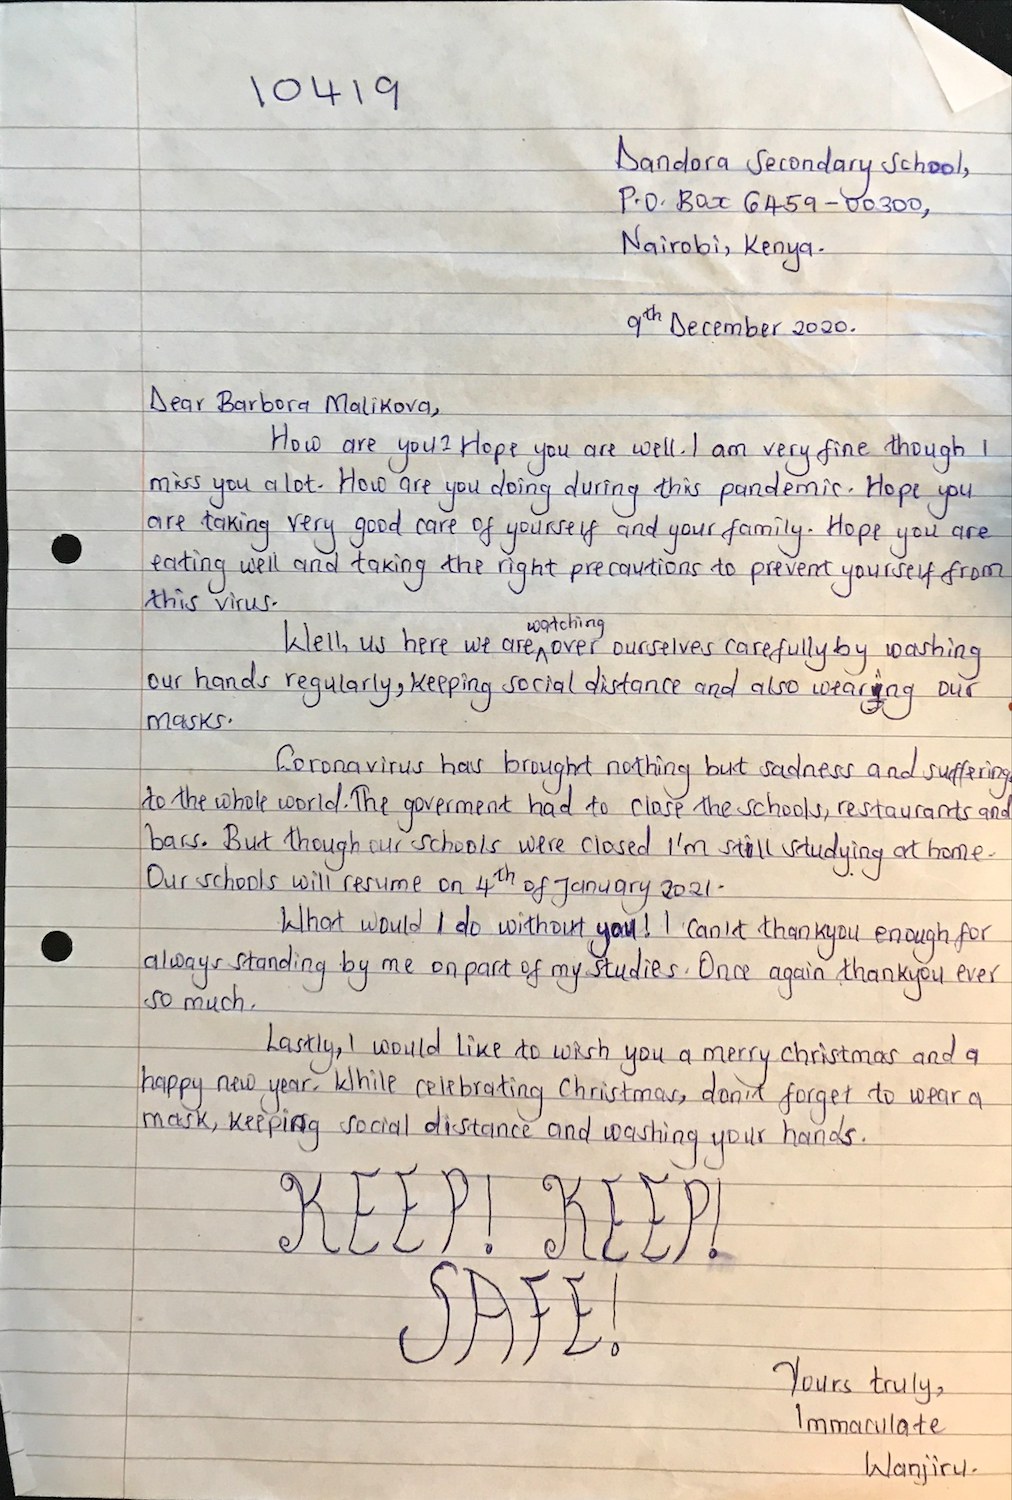 10419
Dandora Secondary School,
P.O. Box 6459-00300,
Nairobi, Kenya.
9th December 2020.
Dear Barbora Malikova,
How are you? Hope you are well. I am very fine though I
miss you alot. How are you doing during this pandemic. Hope you
are taking very good care of yourself and your family. Hope you are
eating well and taking the right precautions to prevent yourself from
this virus.
Well, us here we are watching over ourselves carefully by washing
our hands regularly, keeping social distance and also wearing our
masks.
Coronavirus has brought nothing but sadness and suffering
to the whole world. The goverment had to close the schools, restaurants and
bars. But though our schools were closed I'm still studying at home.
Our schools will resume on 4th of January 2021.
What would I do without you! I can't thankyou enough for
always standing by me on part of my studies. Once again thankyou ever
so much.
Lastly, I would like to wish you a merry christmas and a
happy new year. While celebrating Christmas, don't forget to wear a
mask, keeping social distance and washing your hands.
KEEP! KEEP!
SAFE!
Yours truly,
Immaculate
Wanjiru.